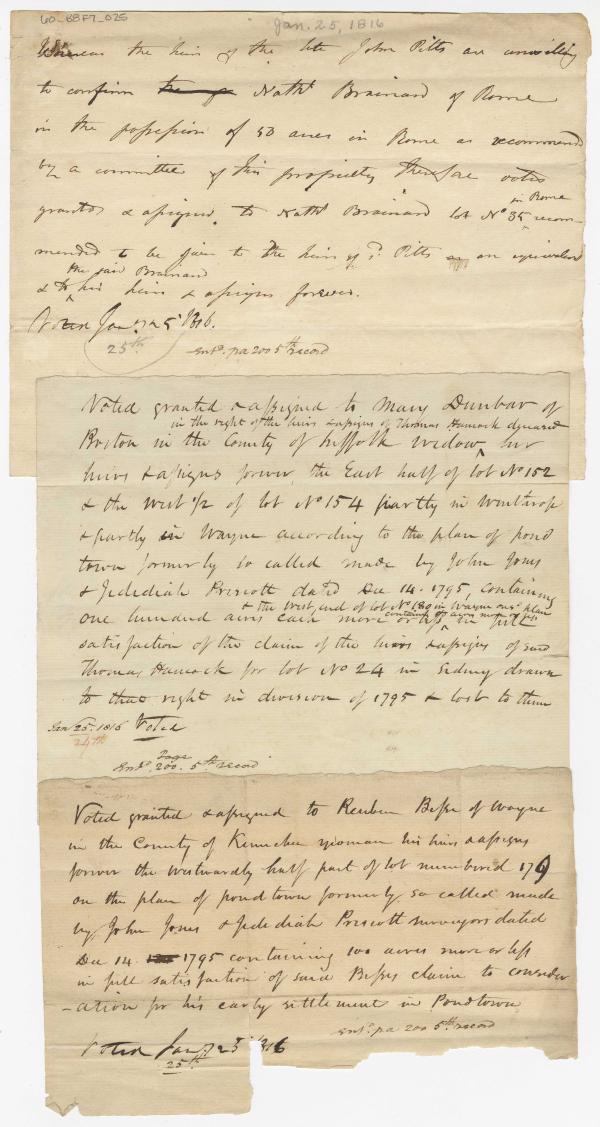 60_BBF7_025
Jan. 25, 1816
Whereas the heirs of the late John Pitts are unwilling
to confirm Nathl Brainard of Rome
in the possession of 50 acres in Rome as recommended
by a committee of this propriety therefore voted
in Rome
granted & assigned to Nathl Brainard lot No 35 recom-
mended to be given to the heirs of sd Pitts as an equivalent
the said Brainard
& to his heirs & assigns forever.
Voted Jany 25 1816.
25th
Entd. pa 200 5th record
Voted granted & assigned to Mary Dunbar of
in the right of the heirs & assigns of Thomas Hancock dyceased
Boston in the County of Suffolk widow, her
heirs & assigns forever, the East half of lot No 152
& the west 1/2 of lot No 154 partly in Winthrop
& partly in Wayne according to the plan of pond
town formerly so called made by John Jones
& Jedediah Prescott dated Dec 14. 1795, containing
& the west end of lot No 180 in Wayne on sd plan
containing acres more or less
one hundred acres each more or less in full
satisfaction of the claim of the heirs & assigns of said
Thomas Hancock for lot No 24 in Sidney drawn
to that right in division of 1795 & lost to them
Jan 25. 1816 Voted
24th
Page
Entd. 200. 5th record
Voted granted & assigned to Reuben Besse of Wayne
in the County of Kennebec yeoman his heirs & assigns
forever the westwardly half part of lot numbered 176
on the plan of pondtown formerly so called made
by John Jones & Jedediah Prescott surveyors dated
Dec 14. 1795 containing 100 acres more or less
in full satisfaction of said Besses claim to consider
-ation for his early settlement in Pondtown
Entd. pa 200 5th record
Voted Jany 25 1816
25th